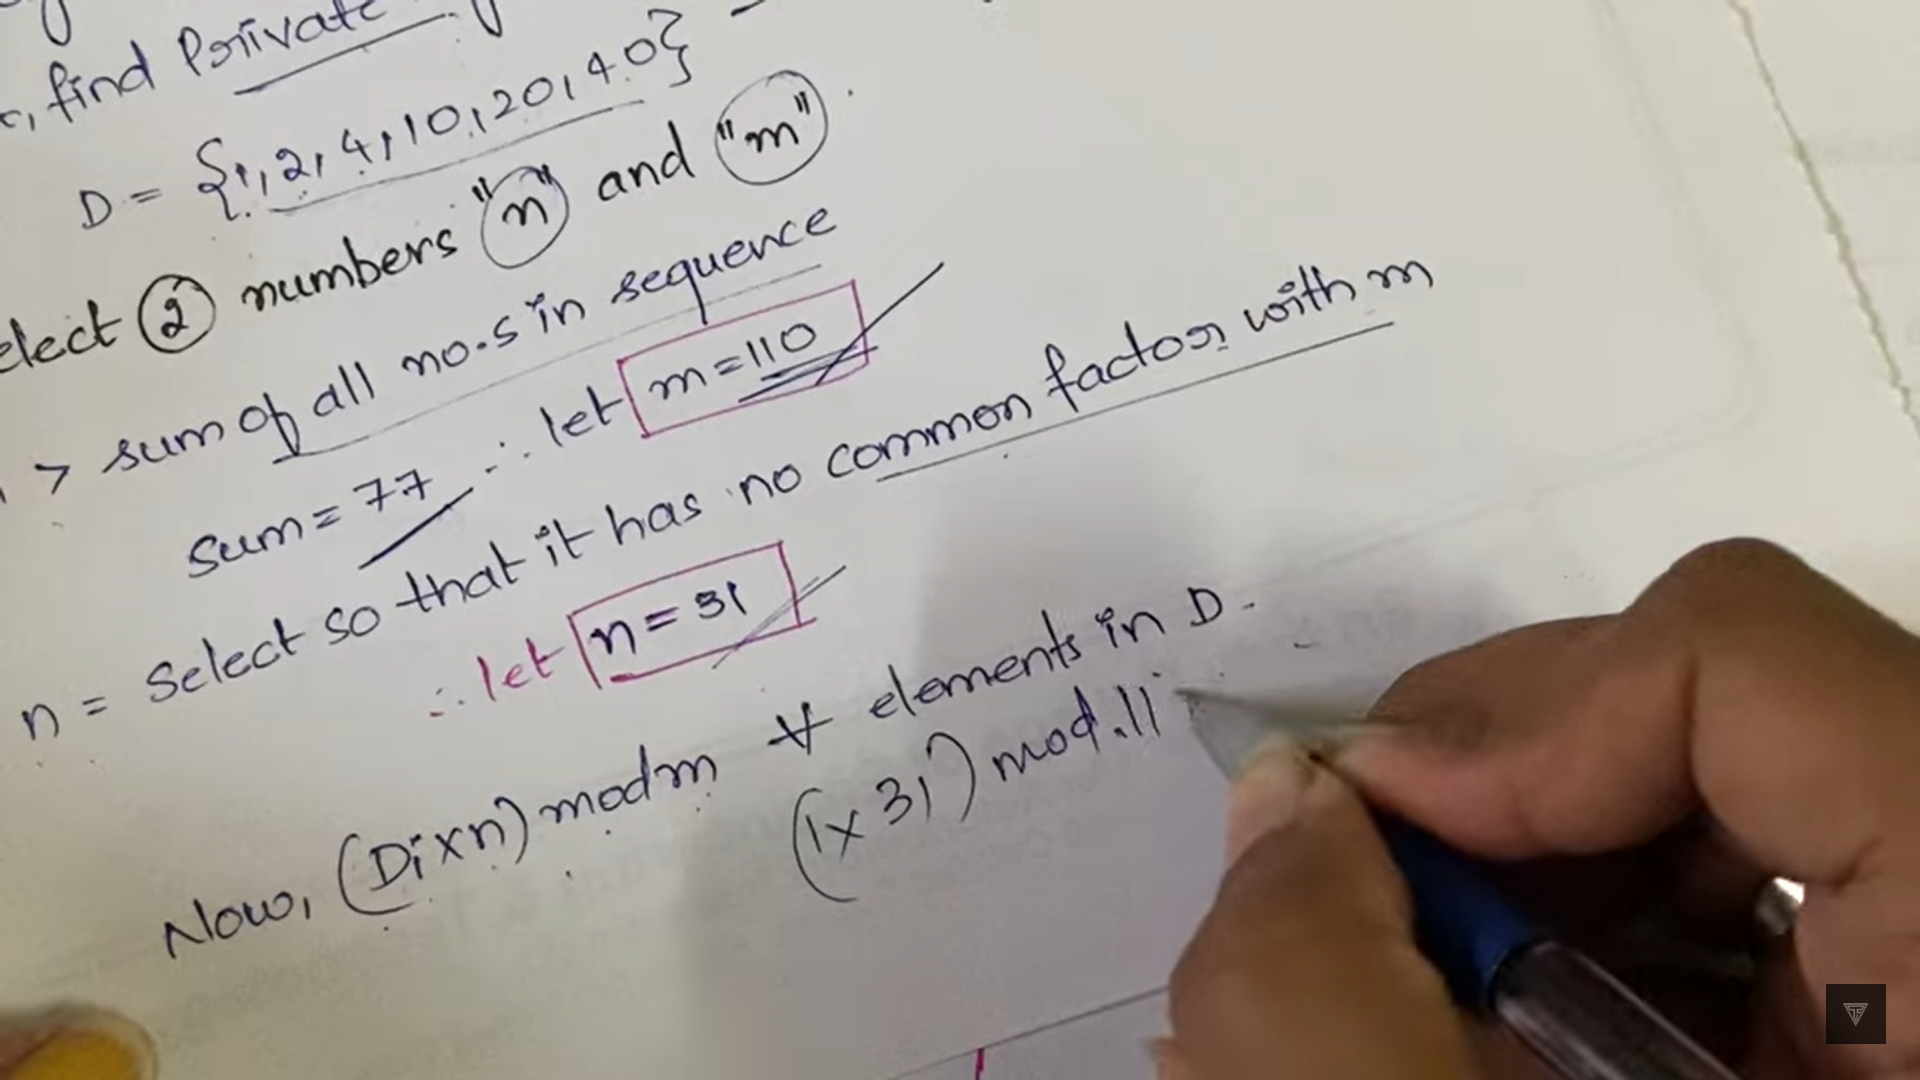 , find Private
D = {1, 2, 4, 10, 20, 40}
elect ② numbers "n" and "m".
> sum of all no.s in sequence
sum = 77 ∴ let m = 110
n = select so that it has no common factor with m
∴ let n = 31
Now, (Di x n) mod m ∀ elements in D.
(1 x 31) mod 11